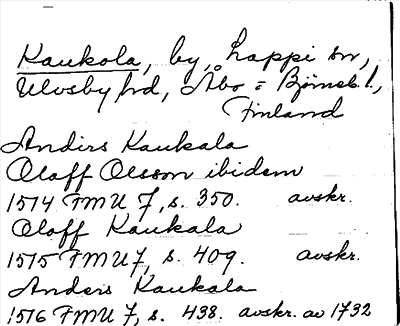 Kaukola, by, Lappi sn,
Ulvsby hd, Åbo = Björneb. l.,
Finland
Anders Kaukala
Olaff Olsson ibidem
1514 FMU 7, s. 350. avskr.
Oloff Kaukala
1515 FMU 7, s. 409. avskr.
Anders Kaukala
1516 FMU 7, s. 438. avskr. av 1732